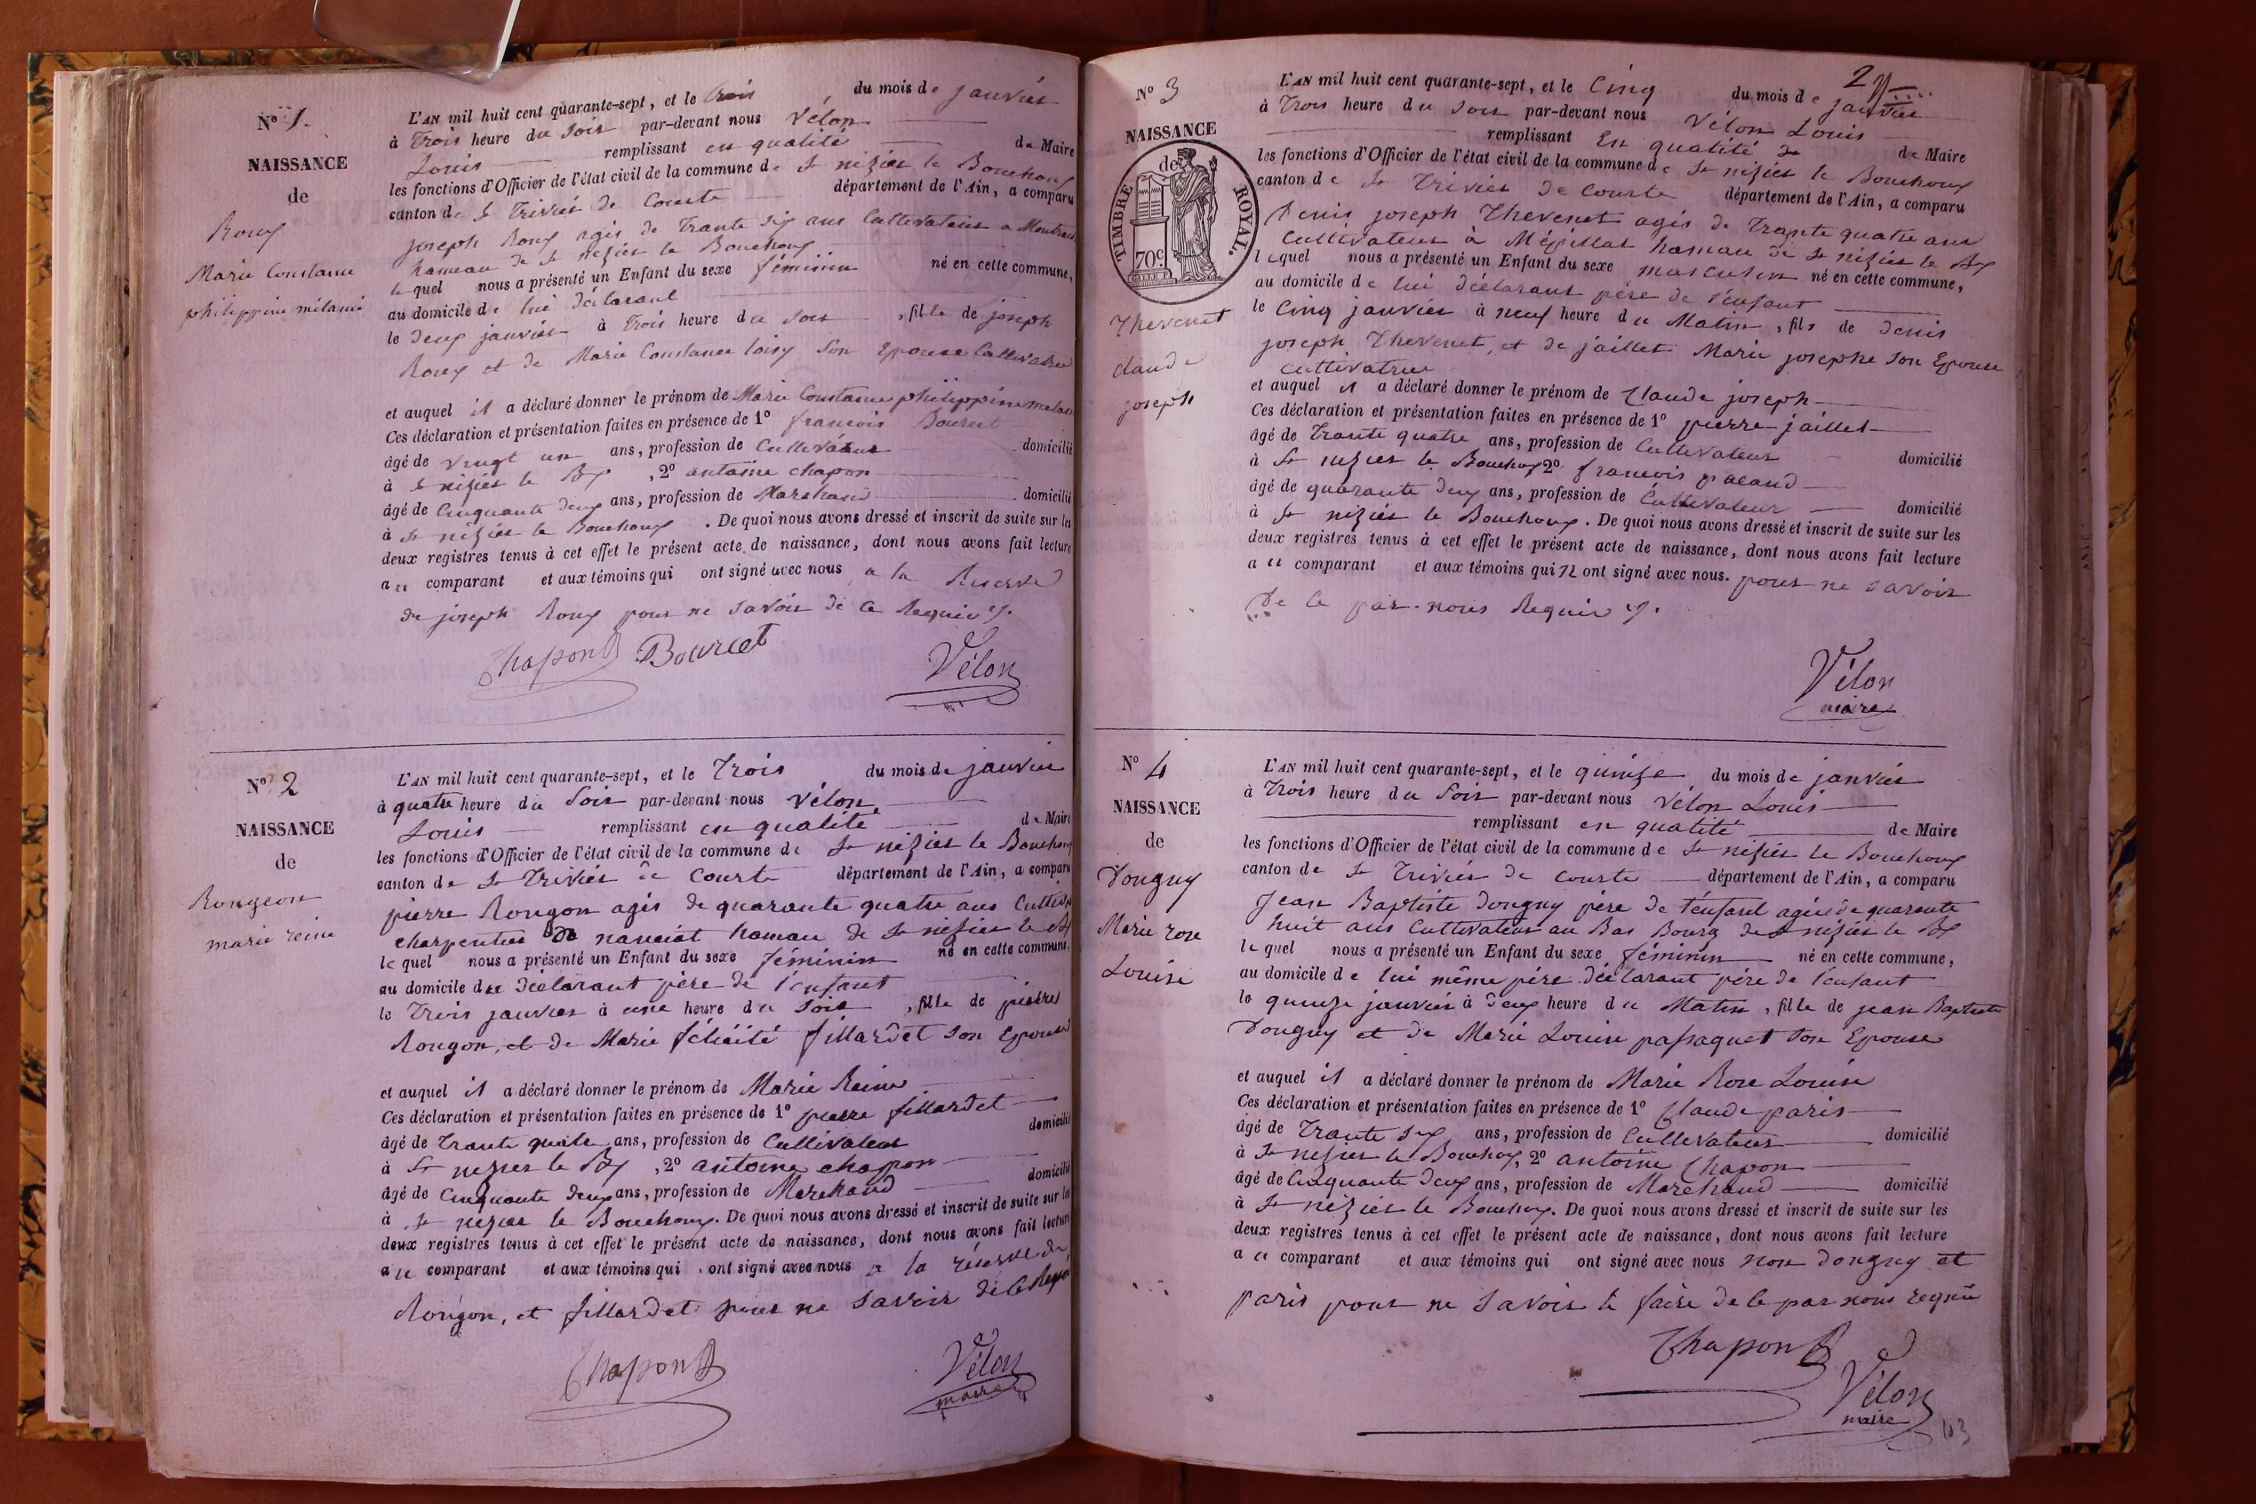 N° 1.
NAISSANCE
de
Roux
Marie Constance
philippine mélanie
L'AN mil huit cent quarante-sept, et le trois du mois de janvier
à Trois heure du Soir par-devant nous Vélon
Louis remplissant en qualité de Maire
les fonctions d'Officier de l'état civil de la commune de St nizier le Bouchoux
canton de St Trivier de Courte département de l'Ain, a comparu
joseph Roux agis de Trante six ans Cultivateur a
hameau de St nizier le Bouchoux
le quel nous a présenté un Enfant du sexe féminin né en cette commune,
au domicile de lui déclarant
le deux janvier à Trois heure du Soir, fille de joseph
Roux et de Marie Constance loisy Son Epouse Cultivatrice
et auquel il a déclaré donner le prénom de Marie Constance philippine mélanie
Ces déclaration et présentation faites en présence de 1° francois Bourcet
âgé de vingt un ans, profession de Cultivateur domicilié
à St nizier le Bx, 2° antoine chapon
âgé de Cinquante deux ans, profession de Marchand domicilié
à St nizier le Bouchoux. De quoi nous avons dressé et inscrit de suite sur les
deux registres tenus à cet effet le présent acte de naissance, dont nous avons fait lecture
au comparant et aux témoins qui ont signé avec nous a la Reserve
de joseph Roux pour ne savoir de ce Requis ./.
Chapon Bourcet Vélon
N° 2
NAISSANCE
de
Rongeon
marie reine
L'AN mil huit cent quarante-sept, et le Trois du mois de janvier
à quatre heure du Soir par-devant nous Vélon
Louis remplissant en qualité de Maire
les fonctions d'Officier de l'état civil de la commune de St nizier le Bouchoux
canton de St Trivier de Courte département de l'Ain, a comparu
pierre Rongon agis de quarante quatre ans
charpentier naneiat hameau de St nizier le Bx
le quel nous a présenté un Enfant du sexe féminin né en cette commune
au domicile du déclarant père de l'enfant
le Trois janvier à une heure du Soir, fille de pierre
Rongon, et de Marie félicité fillardet son Epouse
et auquel il a déclaré donner le prénom de Marie Reine
Ces déclaration et présentation faites en présence de 1° pierre fillardet
âgé de Trante quatre ans, profession de Cultivateur domicilié
à St nizier le Bx, 2° antoine chapon
âgé de Cinquante deux ans, profession de Marchand domicilié
à St nizier le Bouchoux. De quoi nous avons dressé et inscrit de suite sur les
deux registres tenus à cet effet le présent acte de naissance, dont nous avons fait lecture
au comparant et aux témoins qui ont signé avec nous a la réserve de
Rongon, et fillardet pour ne savoir de ce Requis
Chapon Vélon
maire
2
N° 3
NAISSANCE
de
TIMBRE ROYAL.
70c.
Thevenet
claude
joseph
L'AN mil huit cent quarante-sept, et le Cinq du mois de janvier
à Trois heure du soir par-devant nous Vélon Louis
remplissant En qualité de de Maire
les fonctions d'Officier de l'état civil de la commune de St nizier le Bouchoux
canton de St Trivier de Courte département de l'Ain, a comparu
Denis joseph Thevenet agis de Trante quatre ans
Cultivateur à Mépillat hameau de St nizier le Bx
lequel nous a présenté un Enfant du sexe masculin né en cette commune,
au domicile de lui déclarant père de l'enfant
le Cinq janvier à neuf heure du Matin, fils de denis
joseph Thevenet, et de jaillet Marie josephe son Epouse
cultivatrice
et auquel il a déclaré donner le prénom de Claude joseph
Ces déclaration et présentation faites en présence de 1° pierre jaillet
âgé de Trante quatre ans, profession de Cultivateur domicilié
à St nizier le Bouchoux 2° francois pacaud
âgé de quarante deux ans, profession de Cultivateur domicilié
à St nizier le Bouchoux. De quoi nous avons dressé et inscrit de suite sur les
deux registres tenus à cet effet le présent acte de naissance, dont nous avons fait lecture
au comparant et aux témoins qui n ont signé avec nous. pour ne savoir
de ce par nous Requis ./.
Vélon
maire
N° 4
NAISSANCE
de
Dongny
Marie rose
Louise
L'AN mil huit cent quarante-sept, et le quinze du mois de janvier
à Trois heure du Soir par-devant nous Vélon Louis
remplissant en qualité de Maire
les fonctions d'Officier de l'état civil de la commune de St nizier le Bouchoux
canton de St Trivier de Courte département de l'Ain, a comparu
Jean Baptiste Dongny père de l'enfant agée de quarante
huit ans Cultivateur au Bas Bourg de St nizier le Bx
le quel nous a présenté un Enfant du sexe féminin né en cette commune,
au domicile de lui même père déclarant père de l'enfant
le quinze janvier à deux heure du Matin, fille de jean Baptiste
Dongny et de Marie Louise passaquet son Epouse
et auquel il a déclaré donner le prénom de Marie Rose Louise
Ces déclaration et présentation faites en présence de 1° Claude paris
âgé de Trante six ans, profession de Cultivateur domicilié
à St nizier le Bouchoux, 2° antoine Chapon
âgé de Cinquante deux ans, profession de Marchand domicilié
à St nizier le Bouchoux. De quoi nous avons dressé et inscrit de suite sur les
deux registres tenus à cet effet le présent acte de naissance, dont nous avons fait lecture
au comparant et aux témoins qui ont signé avec nous non Dongny et
paris pour ne savoir le faire de ce par nous requis
Chapon
Vélon
maire
103